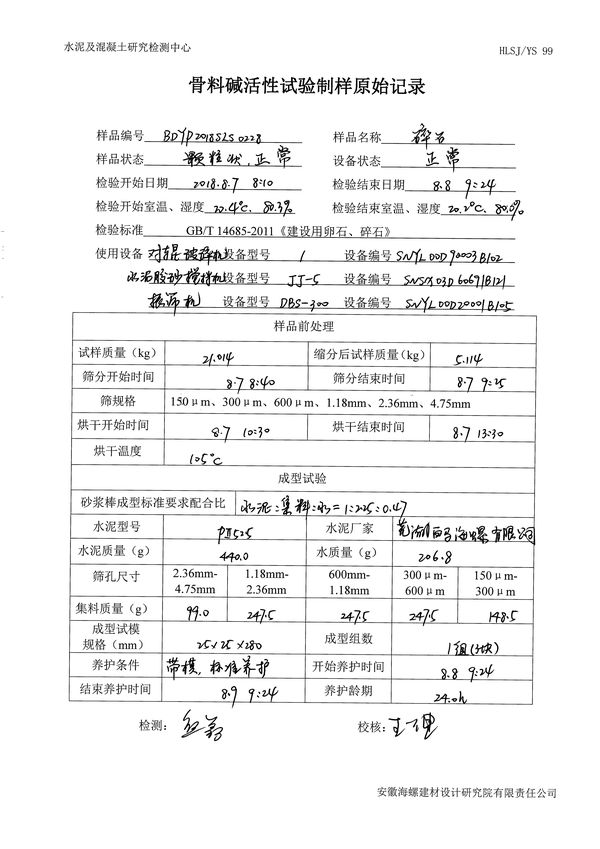 水泥及混凝土研究检测中心 HLSJ/YS 99
骨料碱活性试验制样原始记录
样品编号 BDYP2018SLS0228 样品名称 碎石
样品状态 颗粒状,正常 设备状态 正常
检验开始日期 2018.8.7 8:10 检验结束日期 8.8 9:24
检验开始室温、湿度 20.4℃、80.3% 检验结束室温、湿度 20.2℃、80.6%
检验标准 GB/T 14685-2011《建设用卵石、碎石》
使用设备 对辊破碎机 设备型号 / 设备编号 SNYL00D90003B102
水泥胶砂搅拌机 JJ-5 设备编号 SNSX03D60691B121
振筛机 设备型号 DBS-300 设备编号 SNYL00D20001B105
样品前处理
试样质量(kg) 21.014 缩分后试样质量(kg) 5.114
筛分开始时间 8.7 8:40 筛分结束时间 8.7 9:25
筛规格 150μm、300μm、600μm、1.18mm、2.36mm、4.75mm
烘干开始时间 8.7 10:30 烘干结束时间 8.7 13:30
烘干温度 105℃
成型试验
砂浆棒成型标准要求配合比 水泥:集料:水=1:2.25:0.47
水泥型号 PⅡ52.5 水泥厂家 芜湖海螺有限公司
水泥质量(g) 440.0 水质量(g) 206.8
筛孔尺寸 2.36mm-4.75mm 1.18mm-2.36mm 600mm-1.18mm 300μm-600μm 150μm-300μm
集料质量(g) 99.0 247.5 247.5 247.5 148.5
成型试模规格(mm) 25×25×280 成型组数 1组(3块)
养护条件 带模,标准养护 开始养护时间 8.8 9:24
结束养护时间 8.9 9:24 养护龄期 24.0h
检测: 校核:
安徽海螺建材设计研究院有限责任公司